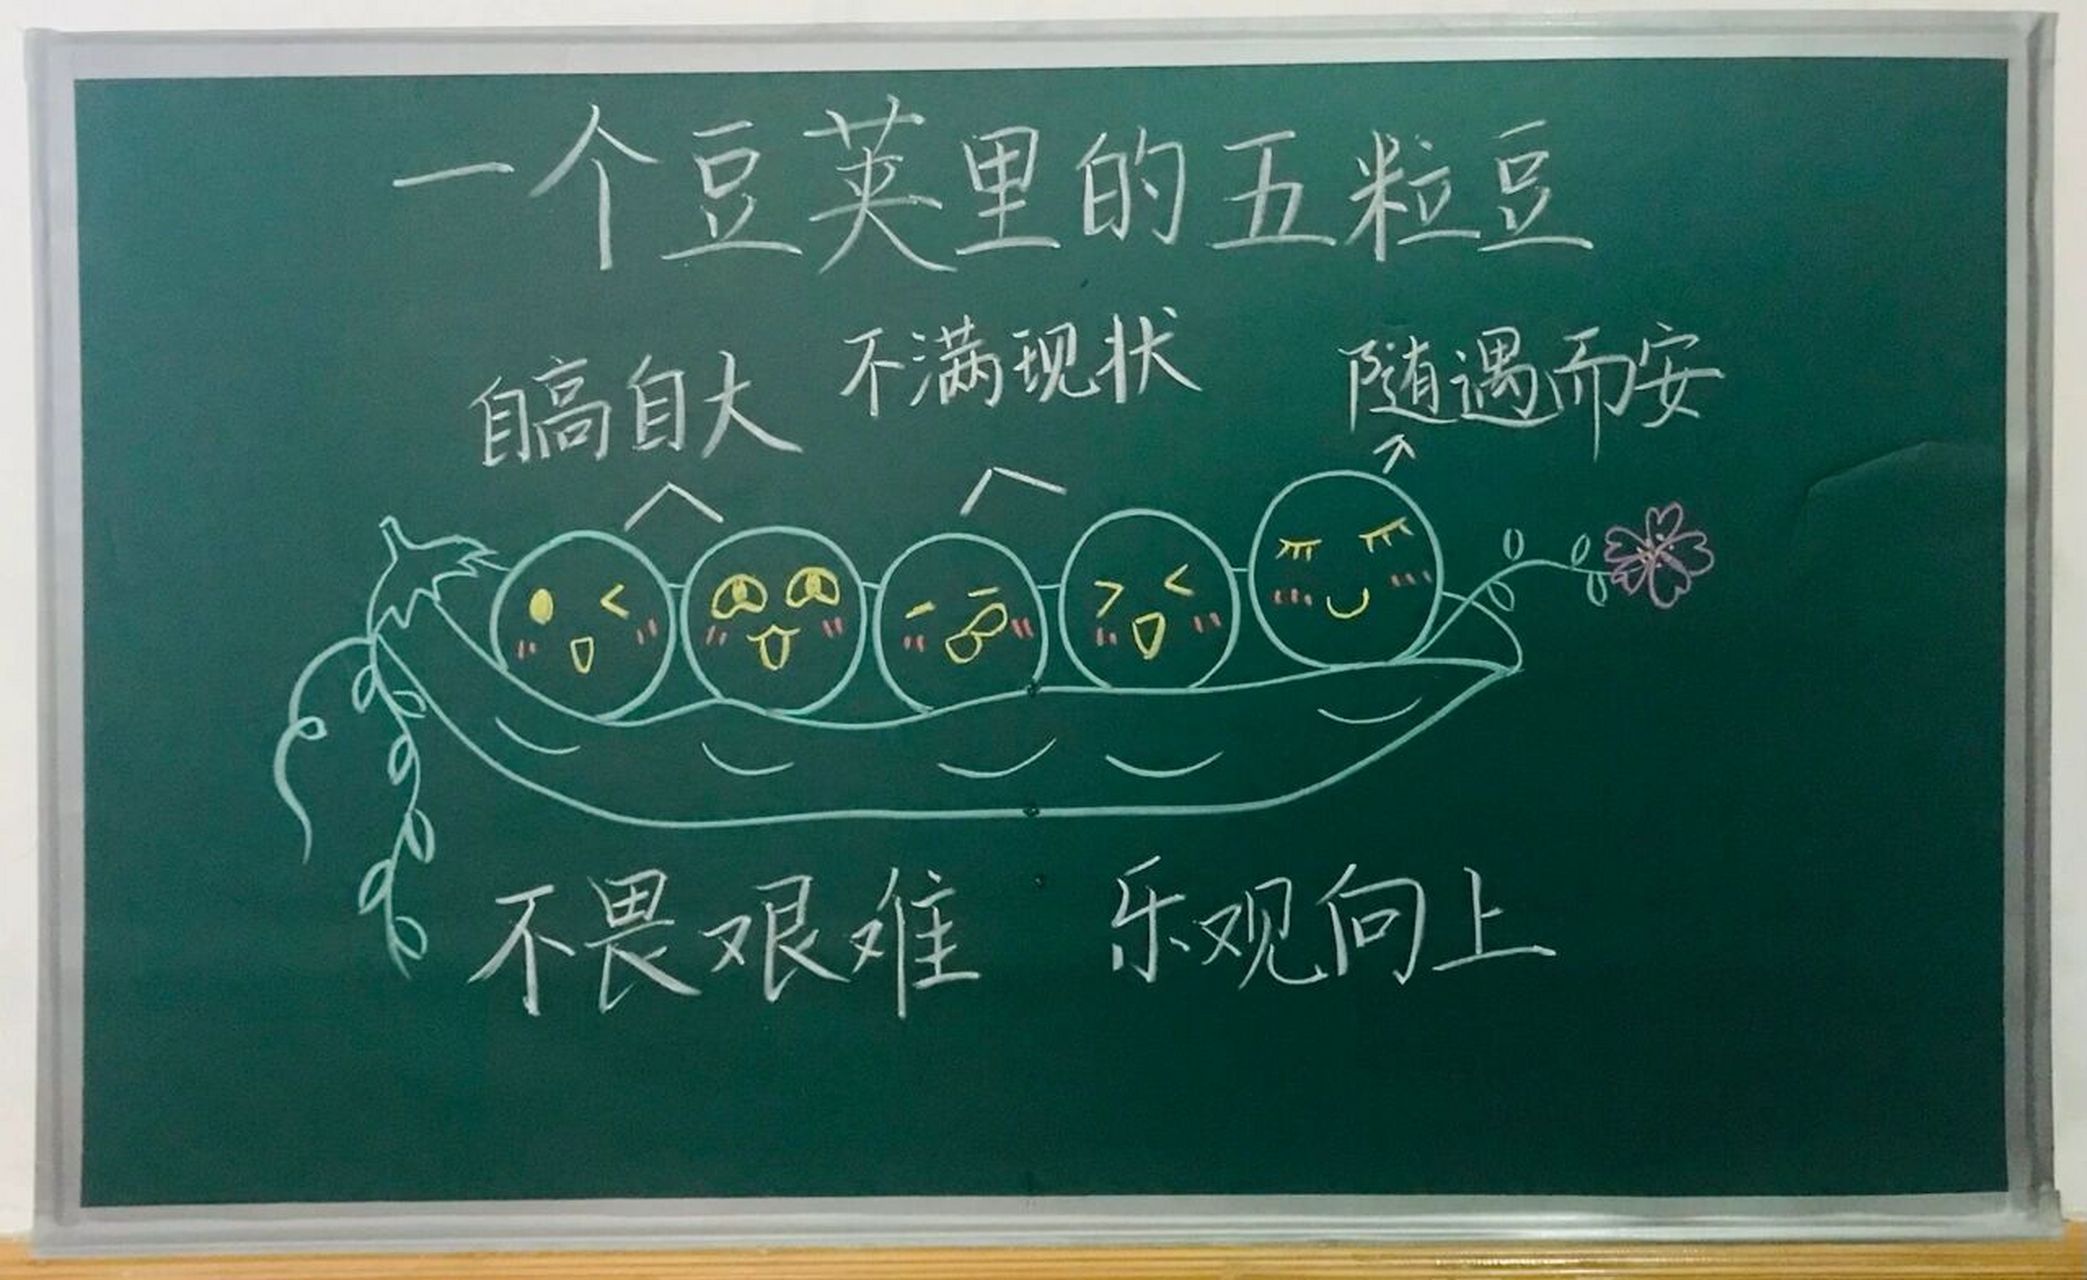 一个豆荚里的五粒豆
自高自大 不满现状 随遇而安
不畏艰难 乐观向上